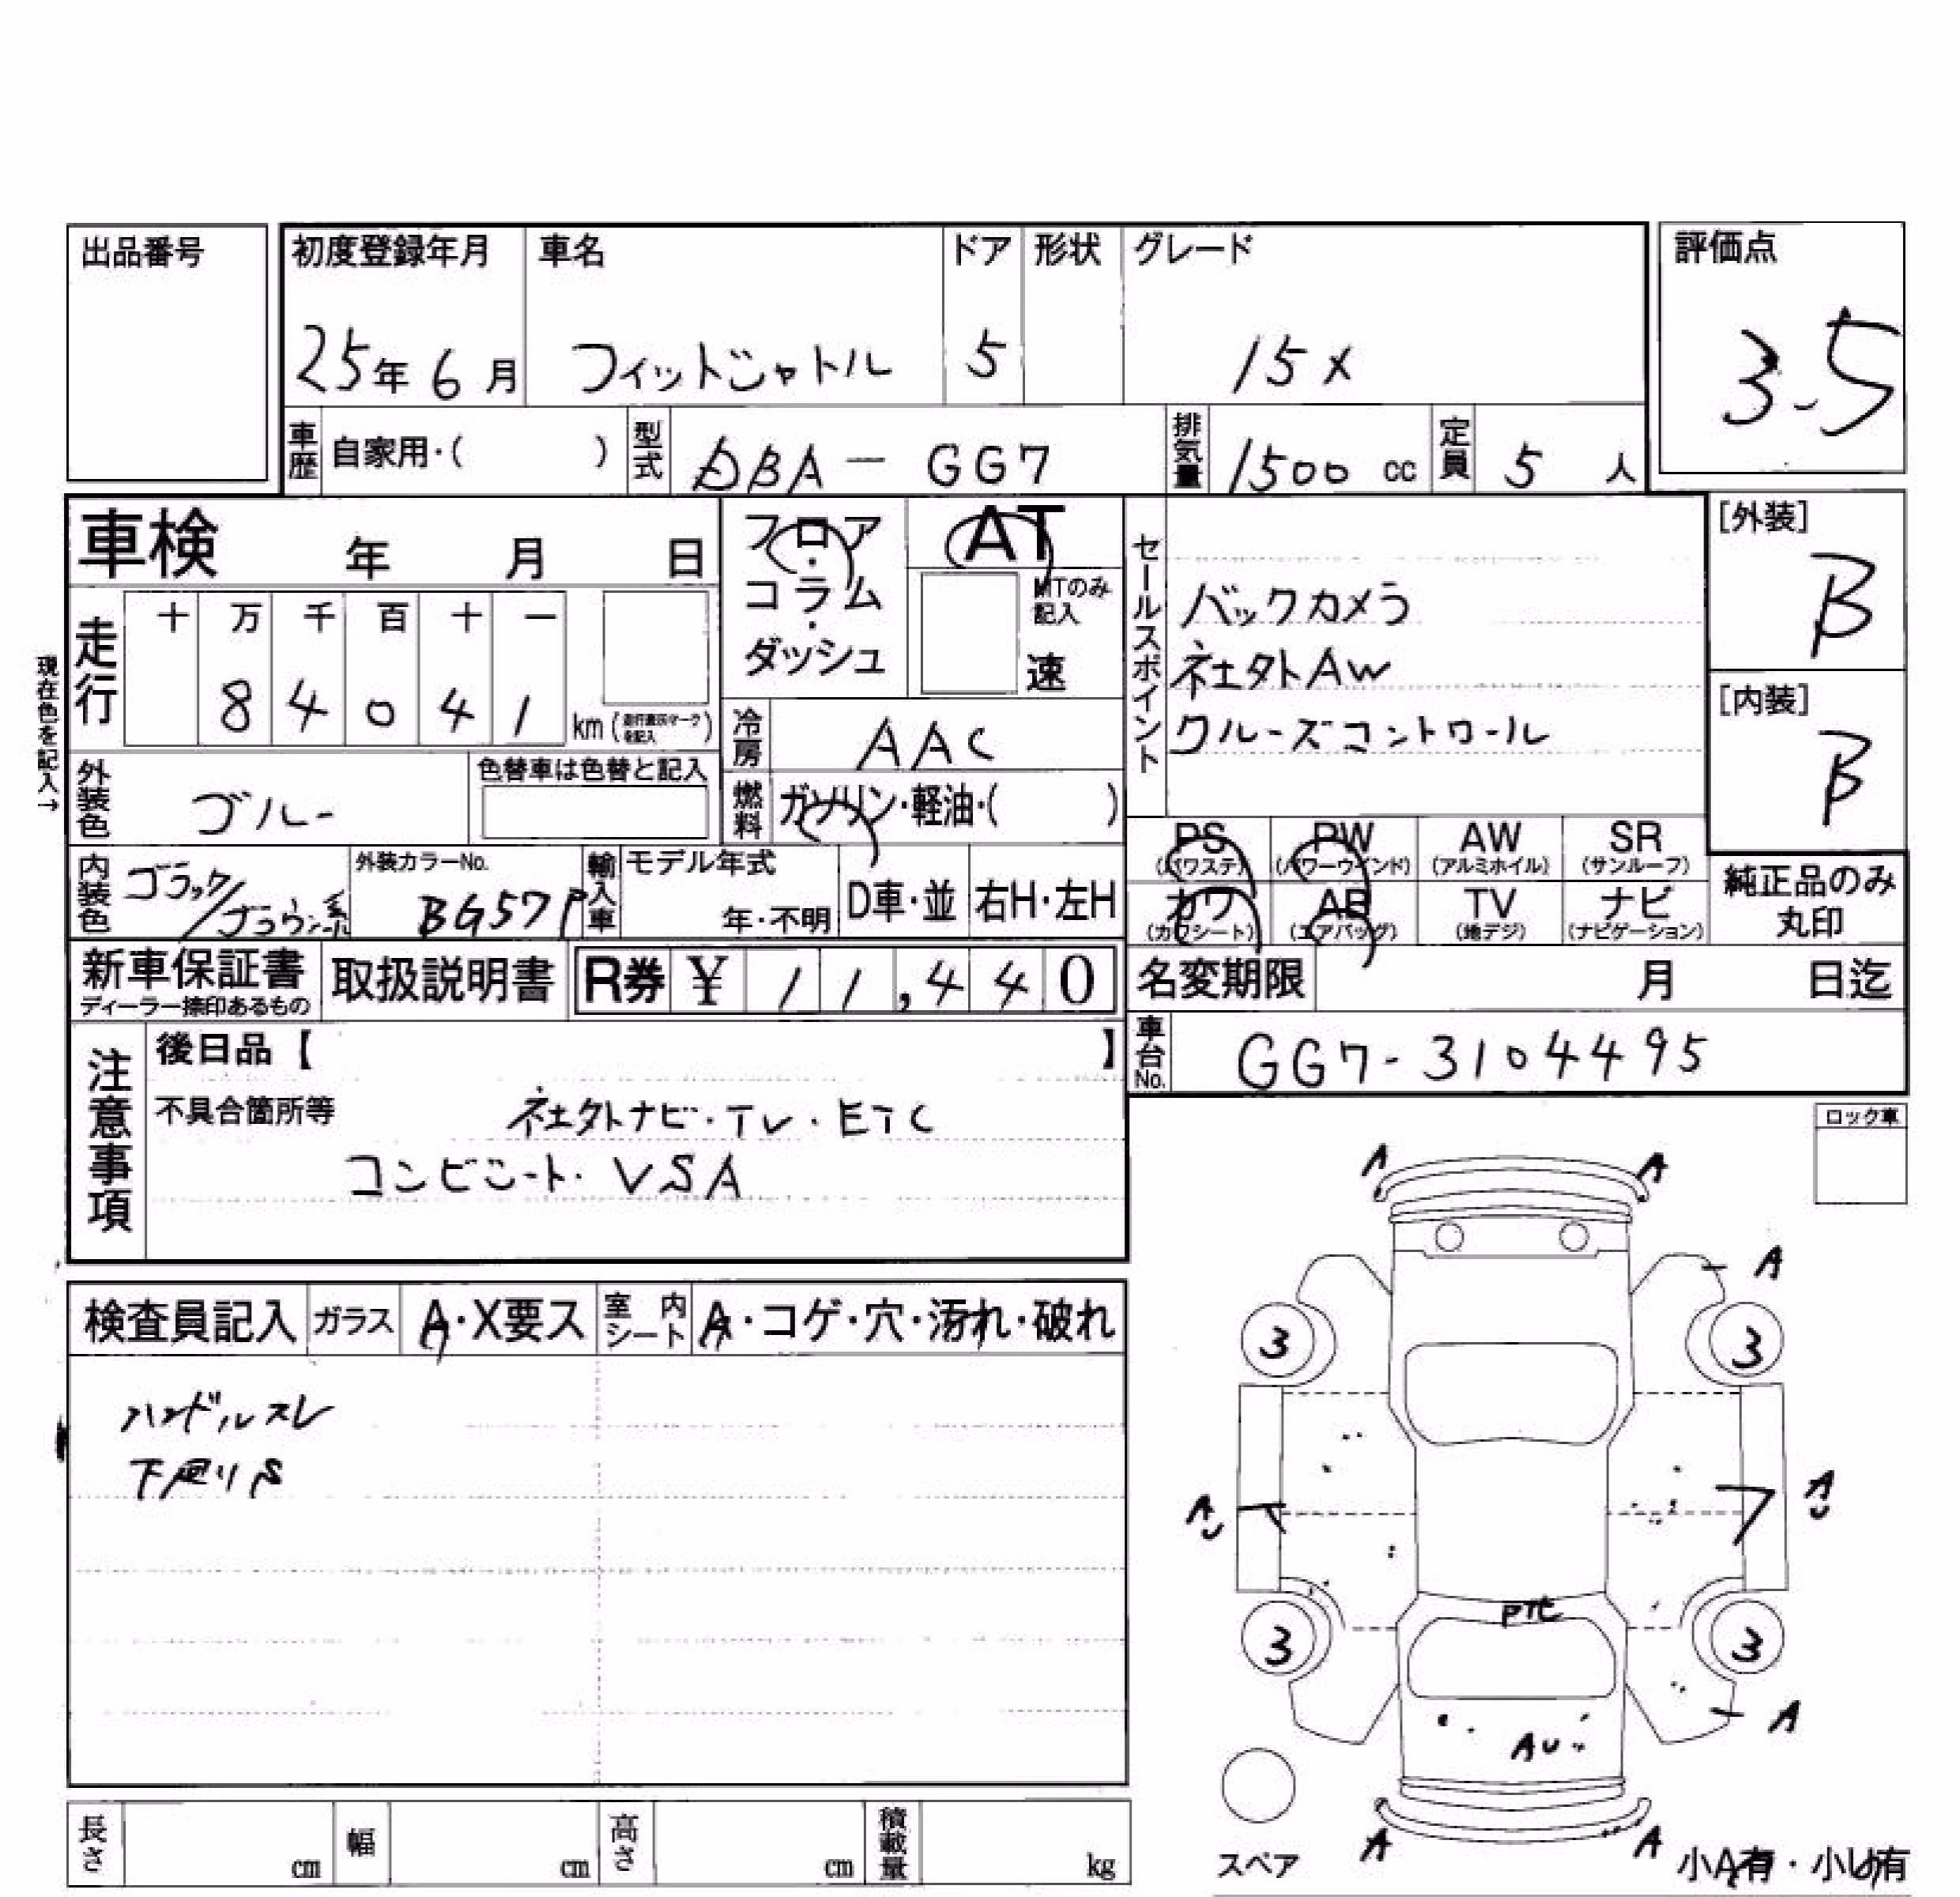 出品番号
初度登録年月 車名 ドア 形状 グレード 評価点
25年6月 フィットシャトル 5 15X 3.5
車歴 自家用・( ) 型式 DBA-GG7 排気量 1500cc 定員 5人
車検 年 月 日
フロア・コラム・ダッシュ
AT
MTのみ記入
速
セールスポイント
バックカメラ
社外AW
クルーズコントロール
[外装]
B
[内装]
B
現在色を記入→
走行 十 万 千 百 十 一
8 4 0 4 1 km
冷房 AAC
外装色 ブルー
色替車は色替と記入
燃料 ガソリン・軽油・( )
PS (パワステ) PW (パワーウインド) AW (アルミホイル) SR (サンルーフ)
カワ (カワシート) AB (エアバッグ) TV (地デジ) ナビ (ナビゲーション)
純正品のみ丸印
内装色 ブラック/ブラウン系
外装カラーNo. BG57P
輸入車 モデル年式 年・不明 D車・並 右H・左H
新車保証書 ディーラー捺印あるもの
取扱説明書
R券 ¥ 11,440
名変期限 月 日迄
車台No. GG7-3104495
注意事項
後日品【 】
不具合箇所等 社外ナビ・TV・ETC
コンビシート・VSA
ロック車
検査員記入 ガラス A・X要ス 室内シート A・コゲ・穴・汚れ・破れ
ハンドルスレ
下廻りS
A A
A
3 3
AU AU
P72
3 3
A
AU
A A
スペア
小A有・小U有
長さ cm 幅 cm 高さ cm 積載量 kg